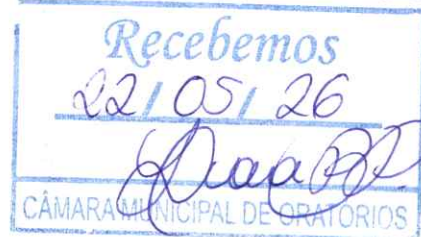 Recebemos
22/05/26
CÂMARA MUNICIPAL DE ORATÓRIOS